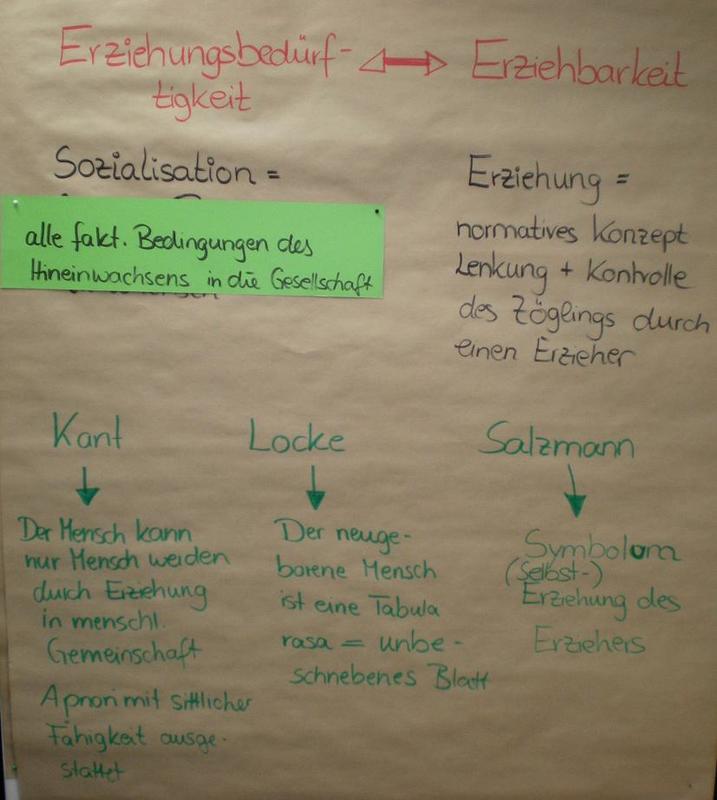 Erziehungsbedürf-
tigkeit
Erziehbarkeit
Sozialisation =
alle fakt. Bedingungen des
Hineinwachsens in die Gesellschaft
Erziehung =
normatives Konzept
Lenkung + Kontrolle
des Zöglings durch
einen Erzieher
Kant
Der Mensch kann
nur Mensch werden
durch Erziehung
in menschl.
Gemeinschaft
Apriori mit sittlicher
Fähigkeit ausge-
stattet
Locke
Der neuge-
borene Mensch
ist eine Tabula
rasa = unbe-
schriebenes Blatt
Salzmann
Symbolum
(Selbst-)
Erziehung des
Erziehers